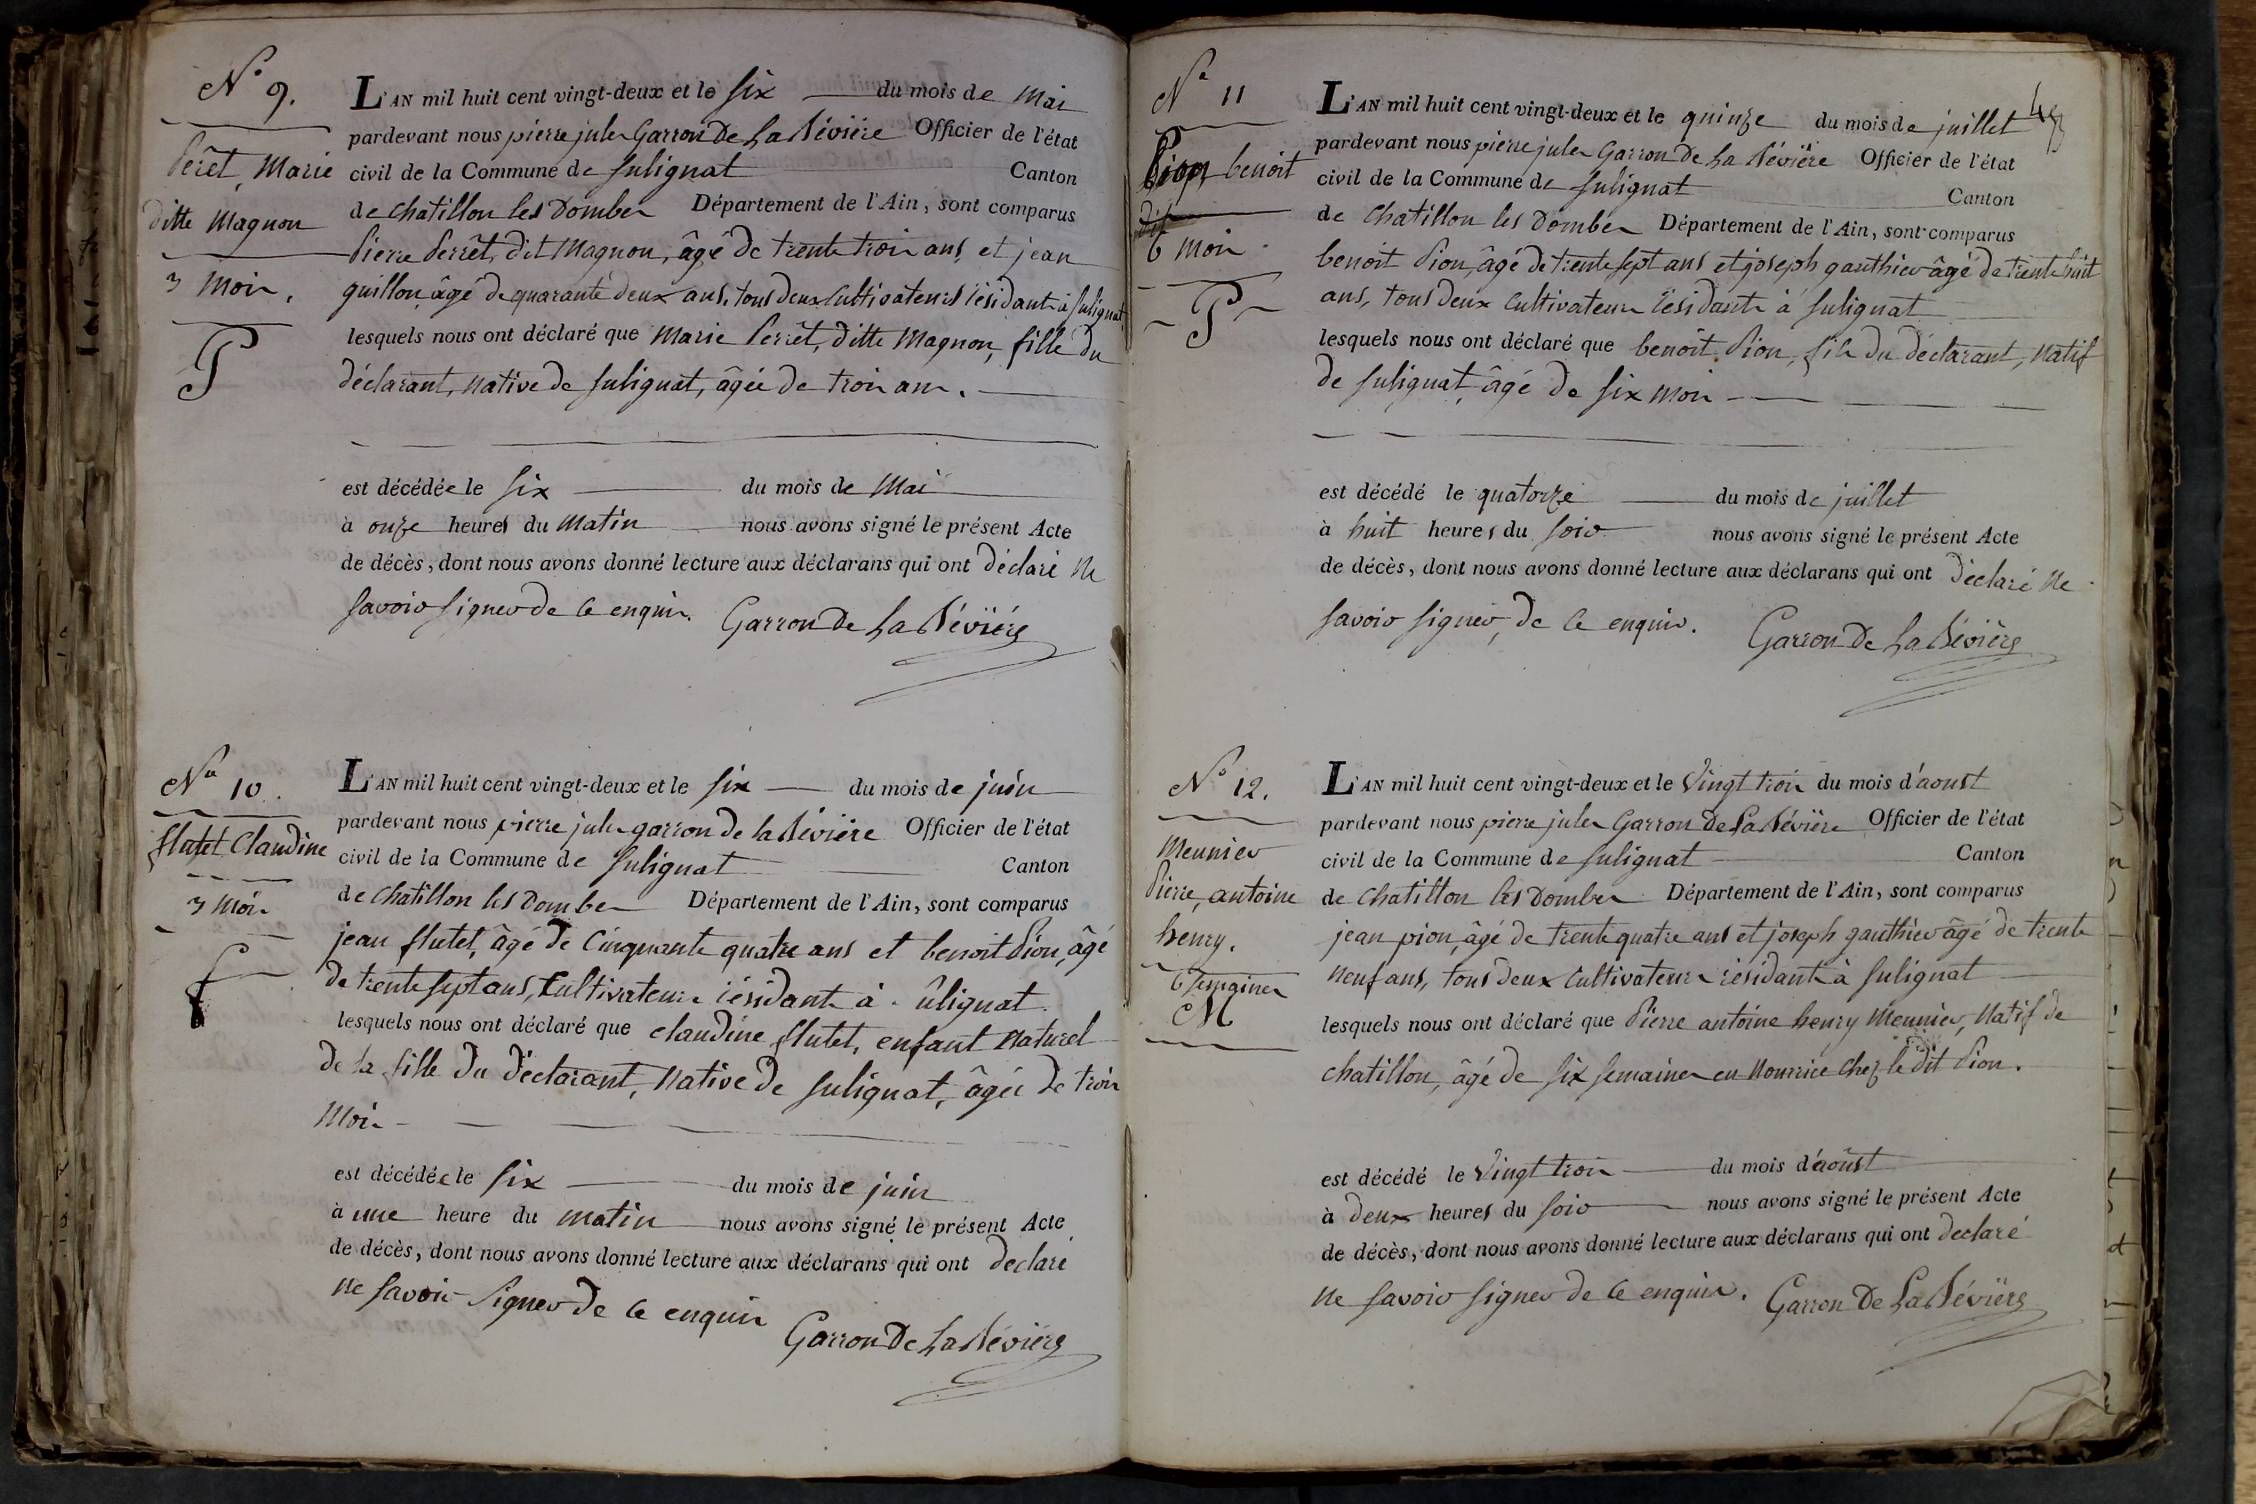 N° 9.
Perêt, Marie
ditte Magnon
3 mois.
P
L'AN mil huit cent vingt-deux et le six du mois de Mai
pardevant nous pierre jules Garron De La Bévière Officier de l'état
civil de la Commune de Sulignat Canton
de chatillon les Dombes Département de l'Ain, sont comparus
Pierre Perrêt, dit Magnon, âgé de trente trois ans, et jean
guillon, âgé de quarante deux ans, tous deux cultivateurs résidants à Sulignat
lesquels nous ont déclaré que Marie Perrêt, ditte Magnon, fille du
déclarant, native de Sulignat, âgée de trois ans.
est décédée le six du mois de Mai
à onze heures du Matin nous avons signé le présent Acte
de décès, dont nous avons donné lecture aux déclarans qui ont déclaré ne
savoir signer de ce enquis. Garron De La Bévière
N° 10.
flutet Claudine
3 mois
f
L'AN mil huit cent vingt-deux et le six du mois de juin
pardevant nous pierre jules garron de la Bévière Officier de l'état
civil de la Commune de Sulignat Canton
de chatillon les Dombes Département de l'Ain, sont comparus
jean flutet, âgé de Cinquante quatre ans et benoit Pion, âgé
de trente sept ans, Cultivateurs résidants à ulignat
lesquels nous ont déclaré que claudine flutet, enfant naturel
de la fille du déclarant, native de Sulignat, âgée de trois
Mois
est décédée le six du mois de juin
à une heure du matin nous avons signé le présent Acte
de décès, dont nous avons donné lecture aux déclarans qui ont declaré
ne savoir signer de ce enquis Garron De La Bévière
N° 11
Pion benoit
dit
6 mois.
P
L'AN mil huit cent vingt-deux et le quinze du mois de juillet
pardevant nous pierre jules Garron De La Bévière Officier de l'état
civil de la Commune de Sulignat Canton
de Chatillon les Dombes Département de l'Ain, sont comparus
benoit Pion, âgé de trente sept ans et joseph gauthier âgé de trente huit
ans, tous deux cultivateurs résidants à Sulignat
lesquels nous ont déclaré que benoit Pion, fils du déclarant, natif
de Sulignat, âgé de six mois
est décédé le quatorze du mois de juillet
à huit heures du soir nous avons signé le présent Acte
de décès, dont nous avons donné lecture aux déclarans qui ont déclaré ne
savoir signer, de ce enquis. Garron De La Bévière
N° 12.
Meunier
Pierre, antoine
henry.
6 semaines
M
L'AN mil huit cent vingt-deux et le Vingt trois du mois d'aoust
pardevant nous pierre jules Garron De La Bévière Officier de l'état
civil de la Commune de Sulignat Canton
de Chatillon les Dombes Département de l'Ain, sont comparus
jean pion, âgé de trente quatre ans et joseph gauthier âgé de trente
neuf ans, tous deux cultivateurs résidants à Sulignat
lesquels nous ont déclaré que Pierre antoine henry Meunier, Natif de
chatillon, âgé de six semaines en nourrice chez le dit Pion.
est décédé le Vingt trois du mois d'aoust
à deux heures du soir nous avons signé le présent Acte
de décès, dont nous avons donné lecture aux déclarans qui ont declaré
ne savoir signer de ce enquis. Garron De La Bévière